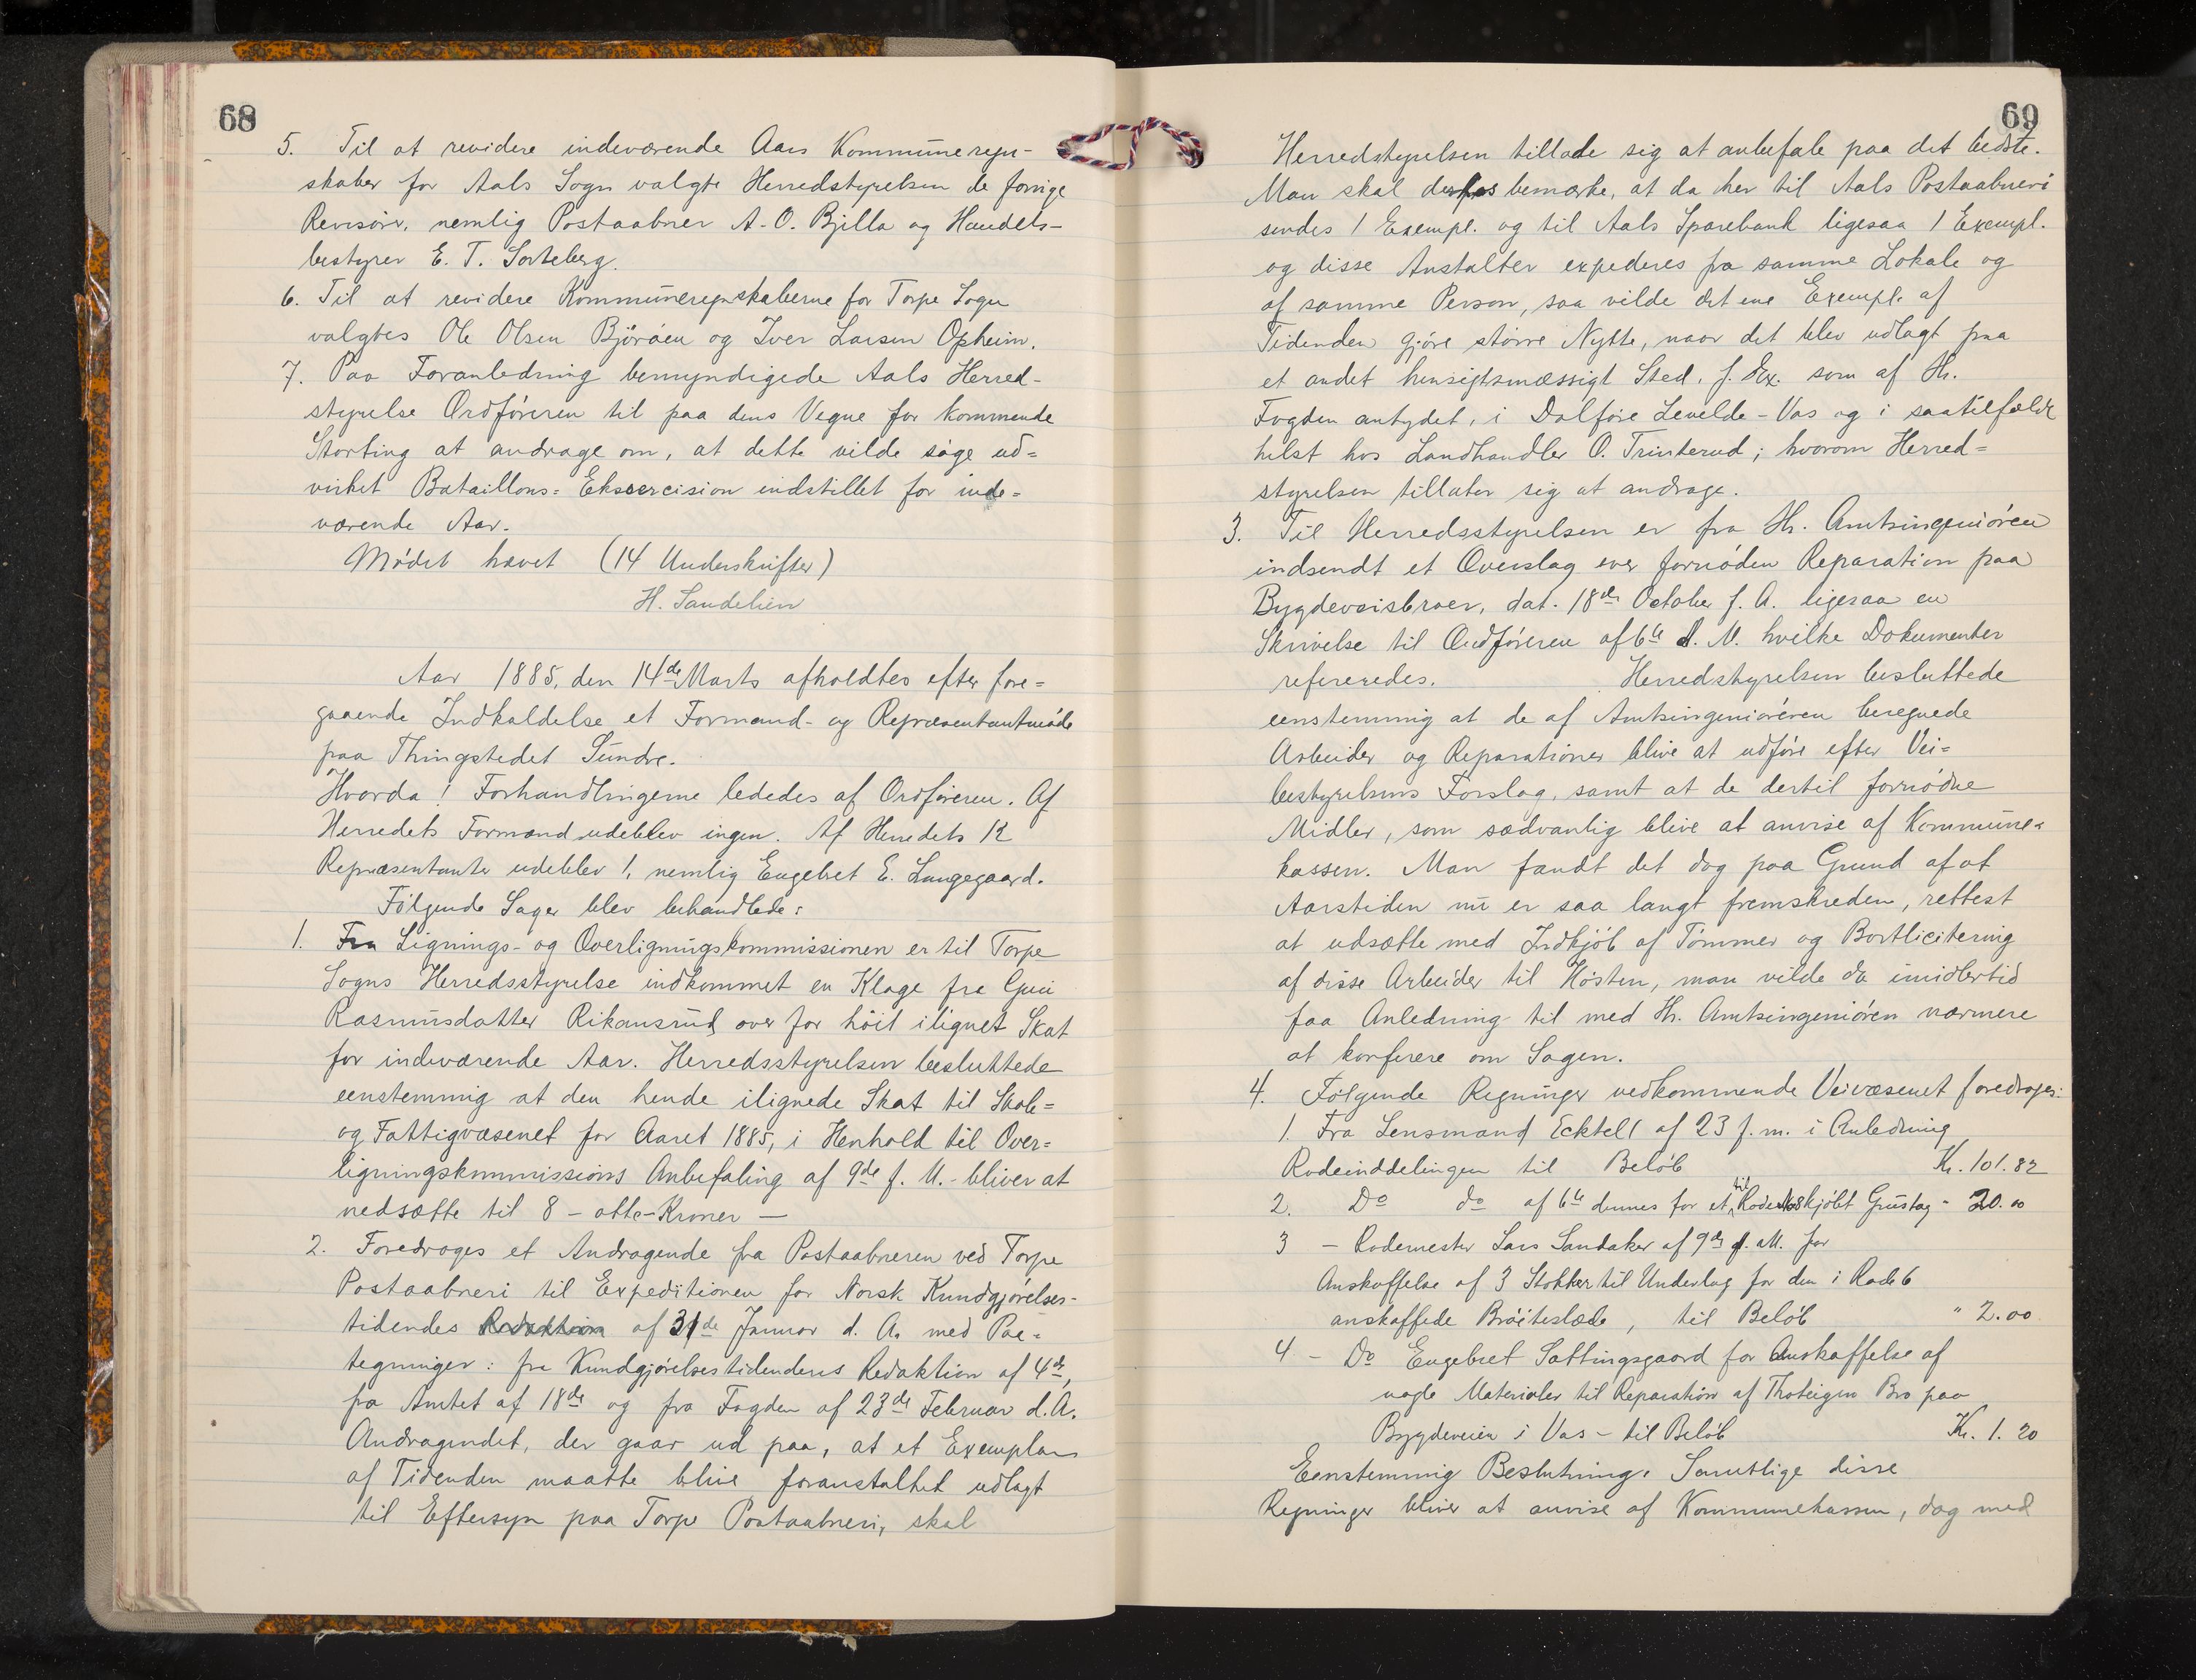 68
5. Til at revidere indeværende Aars Kommuneregn-
skaber for Aals Sogn valgte Herredstyrelsen de forrige
Revisörer, nemlig Postaabner A. O. Bjella og Handels-
bestyrer E. T. Sorteberg.
6. Til at revidere Kommuneregnskaberne for Torpe Sogn
valgtes Ole Olsen Björöen og Iver Larsen Opheim.
7. Paa Foranledning bemyndigede Aals Herred-
styrelse Ordföreren til paa dens Vegne for kommende
Storting at andrage om, at dette vilde söge ud=
virket Bataillons= Eksercision indstillet for inde=
værende Aar.
Mödet hævet (14 Underskrifter)
H. Sandelien
Aar 1885, den 14de Marts afholdtes efter fore=
gaaende Indkaldelse et Formand- og Repræsentantmöde
paa Thingstedet Sundre.
Hvorda! Forhandlingerne lededes af Ordföreren. Af
Herredets Formænd udeblev ingen. Af Herredets 12
Repræsentanter udeblev 1, nemlig Engebret E. Langegaard.
Fölgende Sager blev behandlede:
1. Fra Lignings- og Overligningskommissionen er til Torpe
Sogns Herredsstyrelse indkommet en Klage fra Guri
Rasmusdatter Rikansrud over for höit ilignet Skat
for indeværende Aar. Herredsstyrelsen besluttede
eenstemmig at den hende ilignede Skat til Skole=
og Fattigvæsenet for Aaret 1885, i Henhold til Over=
ligningskommissions Anbefaling af 9de f. M. - bliver at
nedsætte til 8 - otte - Kroner —
2. Foredroges et Andragende fra Postaabneren ved Torpe
Postaabneri til Expeditionen for Norsk Kundgjörelses-
tidendes Redaktion af 31de Januar d. A. med Paa=
tegninger: fra Kundgjörelsestidenderes Redaktion af 4de,
fra Amtet af 18de og fra Fogden af 23de Februar d. A.
Andragendet, der gaar ud paa, at et Exemplar
af Tidenden maatte blive foranstaltet udlagt
til Eftersyn paa Torpe Postaabneri, skal
69
Herredstyrelsen tillade sig at anbefale paa det bedste.
Man skal derhos bemærke, at da her til Aals Postaabneri
sendes 1 Exempl. og til Aals Sparebank ligesaa 1 Exempl.
og disse Anstalter expederes fra samme Lokale og
af samme Person, saa vilde det ene Exempl. af
Tidenden gjöre större Nytte, naar det blev udlagt paa
et andet hensigtsmæssigt Sted, f. Ex. som af Hr.
Fogden antydet, i Dalföre Levelde - Vas og i saatilfælde
helst hos Landhandler O. Trinterud; hvorom Herred=
styrelsen tillater sig at andrage.
3. Til Herredsstyrelsen er fra Hr. Amtsingeniören
indsendt et Overslag over fornöden Reparation paa
Bygdeveisbroer, dat. 18de October f. A. ligesaa en
Skrivelse til Ordföreren af 6te d. M. hvilke Dokumenter
refereredes. Herredstyrelsen besluttede
eenstemmig at de af Amtsingeniören beregnede
Arbeider og Reparationer blive at udföre efter Vei=
bestyrelsens Forslag, samt at de dertil fornödne
Midler, som sædvanlig blive at anvise af Kommune=
kassen. Man fandt det dog paa Grund af at
Aarstiden nu er saa langt fremskreden, rettest
at udsætte med Indkjöb af Tömmer og Bortlicitering
af disse Arbeider til Hösten, man vilde da imidlertid
faa Anledning til med Hr. Amtsingeniören nærmere
at konferere om Sagen.
4. Fölgende Regninger vedkommende Veivæsenet foredroges:
1. Fra Lensmand Ecktell af 23 f. m. i Anledning
Rodeinddelingen til Belöb Kr. 101.82
2. Do do af 6te dennes for et til Rode No 8 kjöbt Grustag - 20.00
3 - Rodemester Lars Sandaker af 9de d. M. for
Anskaffelse af 3 Stokker til Underlag for den i Rode 6
anskaffede Bröiteslæde, til Belöb " 2.00
4 - Do Engebret Sattingsgaard for Anskaffelse af
nogle Materialer til Reparation af Thoteigen Bro paa
Bygdeveien i Vas - til Belöb Kr. 1.20
Eenstemmig Beslutning: Samtlige disse
Regninger bliver at anvise af Kommunekassen, dog med